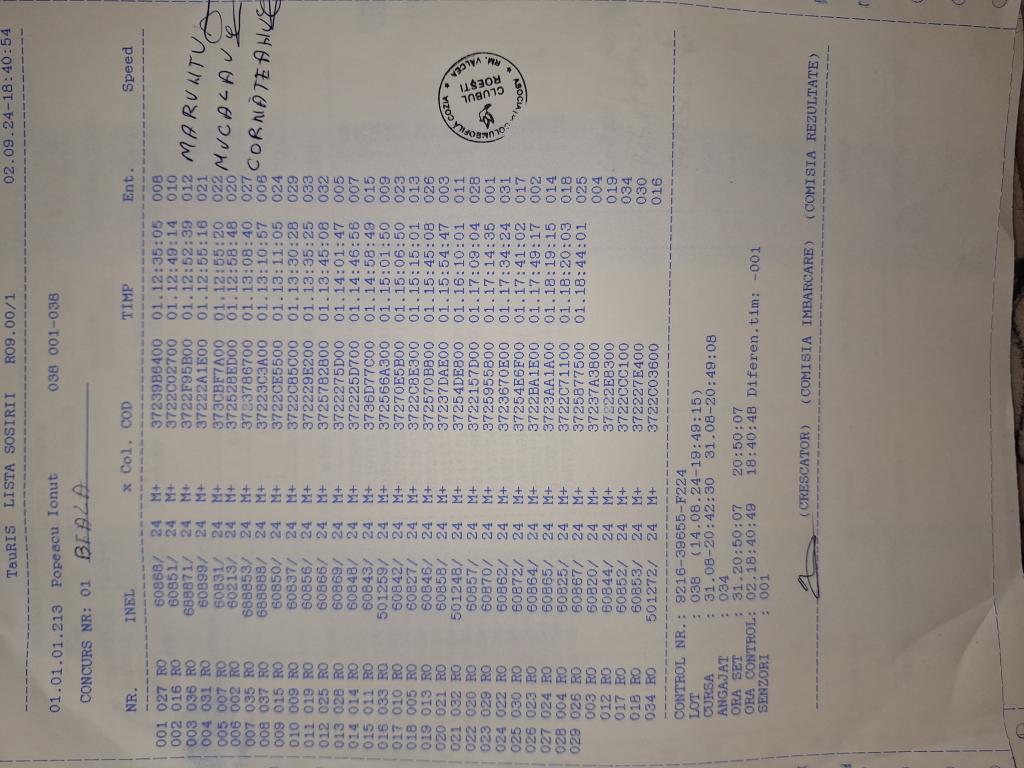 TauRIS LISTA SOSIRII R09.00/1 02.09.24-18:40:54
01.01.01.213 Popescu Ionut 038 001-038
CONCURS NR: 01 BIALA
NR. INEL x Col. COD TIMP Ent. Speed
001 027 RO 60868/ 24 M+ 37239B6400 01.12:35:05 008
002 016 RO 60851/ 24 M+ 3722C02700 01.12:49:14 010
003 036 RO 688871/ 24 M+ 3722F95B00 01.12:52:39 012 MARUNTU
004 031 RO 60899/ 24 M+ 37222A1E00 01.12:55:16 021
005 007 RO 60831/ 24 M+ 373CBF7A00 01.12:55:20 022 MUCALAU
006 002 RO 60213/ 24 M+ 37252BED00 01.12:58:48 020
007 035 RO 688853/ 24 M+ 3723786700 01.13:08:40 027 CORNATEANU
008 037 RO 688888/ 24 M+ 37223C3A00 01.13:10:57 006
009 015 RO 60850/ 24 M+ 3722CE5500 01.13:11:05 024
010 009 RO 60837/ 24 M+ 3722C85C00 01.13:30:28 029
011 019 RO 60856/ 24 M+ 372229E200 01.13:35:25 033
012 025 RO 60866/ 24 M+ 3725782B00 01.13:45:08 032
013 028 RO 60869/ 24 M+ 3722275D00 01.14:01:47 005
014 014 RO 60848/ 24 M+ 372225D700 01.14:46:56 007
015 011 RO 60843/ 24 M+ 3736D77C00 01.14:58:49 015
016 033 RO 501259/ 24 M+ 372566A300 01.15:01:50 009
017 010 RO 60842/ 24 M+ 37270E5B00 01.15:06:50 023
018 005 RO 60827/ 24 M+ 3722C8E300 01.15:15:01 013
019 013 RO 60846/ 24 M+ 372570B800 01.15:45:08 026
020 021 RO 60858/ 24 M+ 37237DAE00 01.15:54:47 003
021 032 RO 501248/ 24 M+ 37254DB800 01.16:10:01 011
022 020 RO 60857/ 24 M+ 3722157D00 01.17:09:04 028
023 029 RO 60870/ 24 M+ 3725955800 01.17:14:35 001
024 022 RO 60862/ 24 M+ 3723670E00 01.17:34:24 031
025 030 RO 60872/ 24 M+ 37254E6F00 01.17:41:02 017
026 023 RO 60864/ 24 M+ 3722BA1E00 01.17:49:17 002
027 024 RO 60865/ 24 M+ 3723AA1A00 01.18:19:15 014
028 004 RO 60825/ 24 M+ 3722C71100 01.18:20:03 018
029 026 RO 60867/ 24 M+ 3725877500 01.18:44:01 025
003 RO 60820/ 24 M+ 37237A3800 004
012 RO 60844/ 24 M+ 3722E2E300 019
017 RO 60852/ 24 M+ 3722CCC100 034
018 RO 60853/ 24 M+ 372227E400 030
034 RO 501272/ 24 M+ 3722C03600 016
ASOCIATIA COLUMBOFILA COZIA
CLUBUL
ROEȘTI
RM. VÂLCEA
CONTROL NR.: 9216-39655-F224
LOT : 038 (14.08.24-19:49:15)
CURSA : 31.08-20:42:30 31.08-20:49:08
ANGAJAT : 034
ORA SET : 31.20:50:07 20:50:07
ORA CONTROL: 02.18:40:49 18:40:48 Diferen.tim: -001
SENZORI : 001
(CRESCATOR) (COMISIA IMBARCARE) (COMISIA REZULTATE)